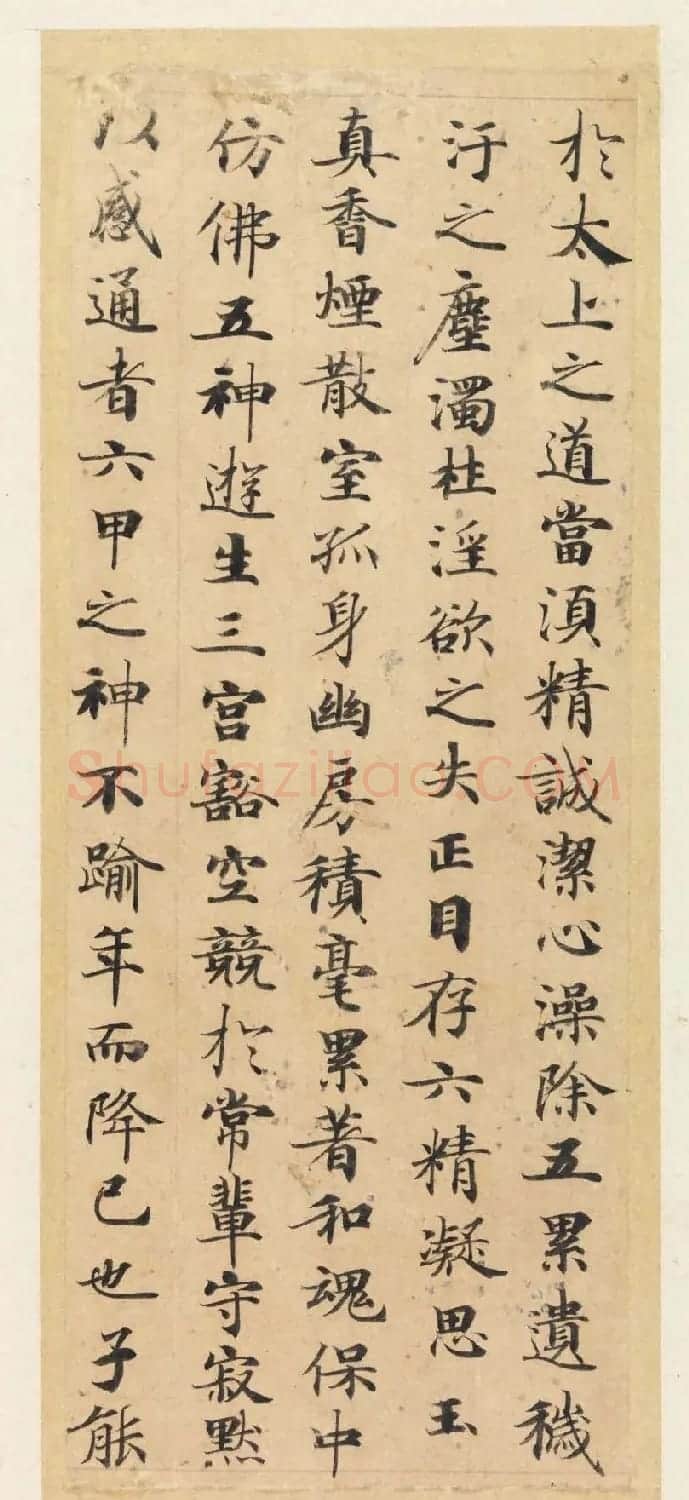 於太上之道當湏精誠潔心澡除五累遺穢
汙之塵濁杜淫欲之失正目存六精凝思玉
真香煙散室孤身幽房積毫累著和魂保中
仿佛五神遊生三宮豁空競於常輩守寂默
以感通者六甲之神不踰年而降己也子能
Shufaziliao.COM